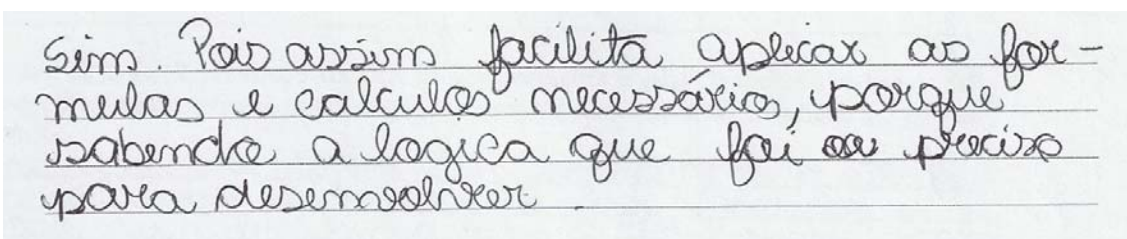 Sim. Pois assim facilita aplicar as for-
mulas e calculos necessários, porque
sabendo a logica que foi preciso
para desenvolver.